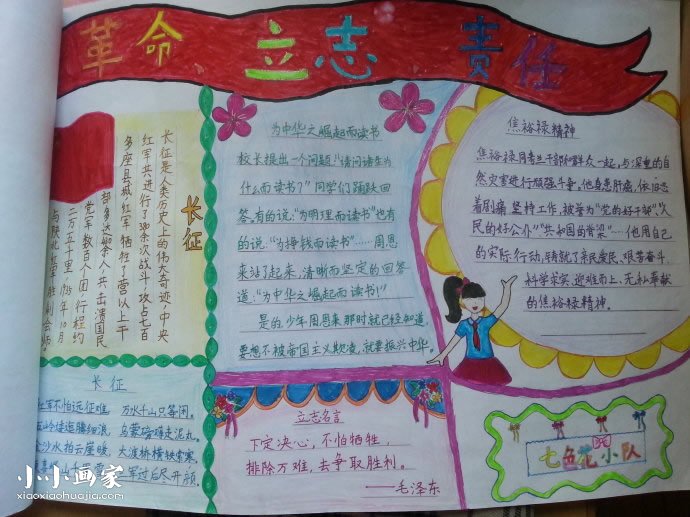 革命 立志 责任
长征
长征是人类历史上的伟大奇迹，中央
红军共进行了380余次战斗，攻占七百
多座县城，红军牺牲了营以上干
部多达430余人，共击溃国民
党军数百个团，行程约
二万五千里，1936年10月
与陕北红军胜利会师。
长征
红军不怕远征难，万水千山只等闲。
五岭逶迤腾细浪，乌蒙磅礴走泥丸。
金沙水拍云崖暖，大渡桥横铁索寒。
军过后尽开颜
为中华之崛起而读书
校长提出一个问题："请问诸生为
什么而读书？"同学们踊跃回
答。有的说："为明理而读书"也有
的说："为挣钱而读书"……周恩
来站了起来，清晰而坚定的回答
道："为中华之崛起而读书！"
是的，少年周恩来那时就已经知道，
要想不被帝国主义欺凌，就要振兴中华。
立志名言
下定决心，不怕牺牲，
排除万难，去争取胜利。
——毛泽东
焦裕禄精神
焦裕禄同考兰干部和群众一起，与深重的自
然灾害进行顽强斗争，他身患肝癌，依旧忍
着剧痛坚持工作，被誉为"党的好干部""人
民的好公仆""共和国的脊梁"……他用自己
的实际行动，铸就了亲民爱民、艰苦奋斗、
科学求实、迎难而上、无私奉献
的焦裕禄精神。
七色花小队
小小画家
xiaoxiaohuajia.com